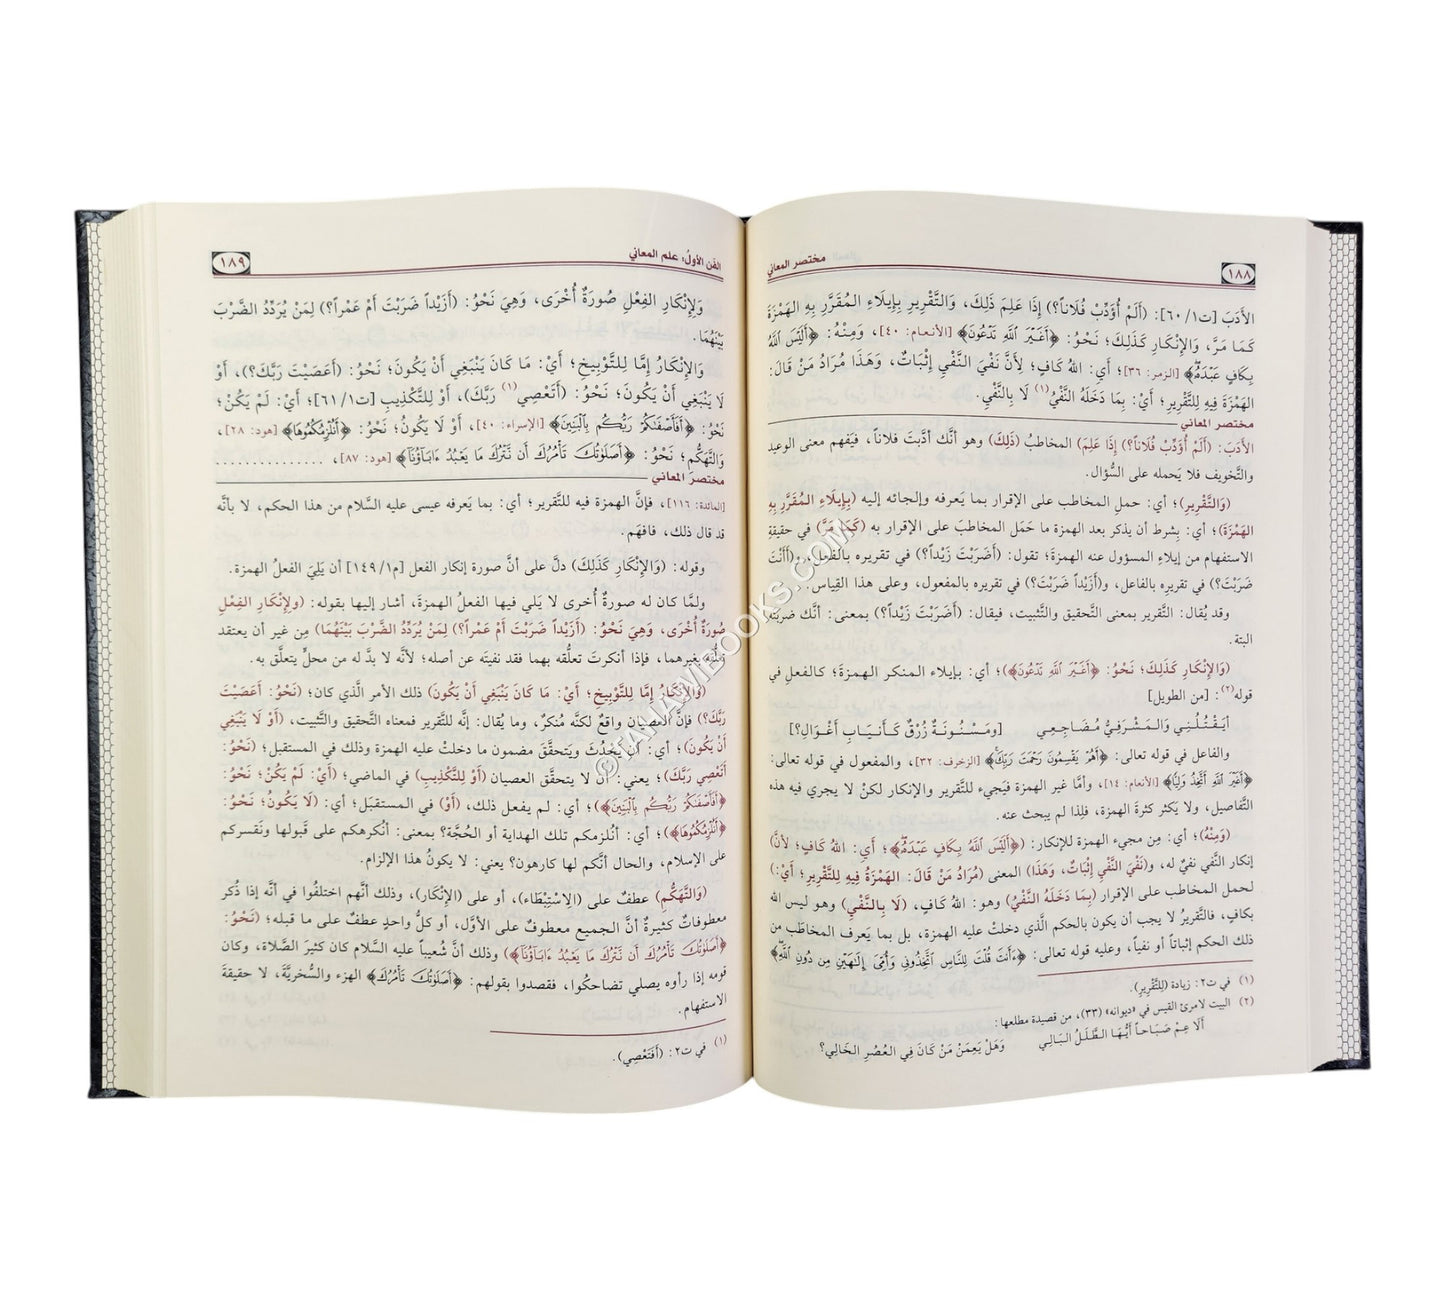 ١٨٨
مختصر المعاني
الأَدَبَ [ت١/٦٠]: (أَلَمْ أُؤَدِّبْ فُلَاناً؟) إِذَا عَلِمَ ذَلِكَ، وَالتَّقْرِيرِ بِإِيلَاءِ المُقَرَّرِ بِهِ الهَمْزَةَ
كَمَا مَرَّ، وَالإِنْكَارِ كَذَلِكَ؛ نَحْوُ: ﴿أَغَيْرَ اللَّهِ تَدْعُونَ﴾ [الأنعام: ٤٠]، وَمِنْهُ: ﴿أَلَيْسَ اللَّهُ
بِكَافٍ عَبْدَهُ﴾ [الزمر: ٣٦]؛ أَيِ: اللهُ كَافٍ؛ لِأَنَّ نَفْيَ النَّفْيِ إِثْبَاتٌ، وَهَذَا مُرَادُ مَنْ قَالَ:
الهَمْزَةُ فِيهِ لِلتَّقْرِيرِ؛ أَيْ: بِمَا دَخَلَهُ النَّفْيُ(١) لَا بِالنَّفْيِ.
مختصر المعاني
الأَدَبَ: (أَلَمْ أُؤَدِّبْ فُلَاناً؟) إِذَا عَلِمَ) المخاطبُ (ذَلِكَ) وهو أنَّك أدَّبتَ فلاناً، فيَفهم معنى الوعيد
والتَّخويف فلا يَحمله على السُّؤال.
(وَالتَّقْرِيرِ)؛ أي: حملِ المخاطب على الإقرار بما يَعرفه وإلجائه إليه (بِإِيلَاءِ المُقَرَّرِ بِهِ
الهَمْزَةَ)؛ أي: بِشرط أن يذكر بعد الهمزة ما حَمَل المخاطبَ على الإقرار به (كَمَا مَرَّ) في حقيقةِ
الاستفهام من إيلاء المسؤول عنه الهمزةَ؛ تقول: (أَضَرَبْتَ زَيْداً؟) في تقريره بالفعل، و(أَأَنْتَ
ضَرَبْتَ؟) في تقريره بالفاعل، و(أَزَيْداً ضَرَبْتَ؟) في تقريره بالمفعول، وعلى هذا القِياس.
وقد يُقال: التَّقرير بمعنى التَّحقيق والتَّثبيت، فيقال: (أَضَرَبْتَ زَيْداً؟) بمعنى: أنَّك ضربتَه
البتة.
(وَالإِنْكَارِ كَذَلِكَ؛ نَحْوُ: ﴿أَغَيْرَ اللَّهِ تَدْعُونَ﴾)؛ أي: بإيلاء المنكر الهمزةَ؛ كالفعل في
قوله(٢): [من الطويل]
أَيَقْتُلُنِي وَالمَشْرَفِيُّ مُضَاجِعِي [وَمَسْنُونَةٌ زُرْقٌ كَأَنْيَابِ أَغْوَالِ؟]
والفاعل في قوله تعالى: ﴿أَهُمْ يَقْسِمُونَ رَحْمَتَ رَبِّكَ﴾ [الزخرف: ٣٢]، والمفعول في قوله تعالى:
﴿أَغَيْرَ اللَّهِ أَتَّخِذُ وَلِيًّا﴾ [الأنعام: ١٤]، وأمَّا غير الهمزة فيَجيء للتَّقرير والإنكار لكنْ لا يجري فيه هذه
التَّفاصيل، ولا يَكثر كثرةَ الهمزة، فلِذا لم يبحث عنه.
(وَمِنْهُ)؛ أي: مِن مجيء الهمزة للإنكار: (﴿أَلَيْسَ اللَّهُ بِكَافٍ عَبْدَهُ﴾؛ أَيِ: اللهُ كَافٍ؛ لأنَّ
إنكار النَّفي نفيٌ له، و(نَفْيَ النَّفْيِ إِثْبَاتٌ، وَهَذَا) المعنى (مُرَادُ مَنْ قَالَ: الهَمْزَةُ فِيهِ لِلتَّقْرِيرِ؛ أَيْ):
لحمل المخاطب على الإقرار (بِمَا دَخَلَهُ النَّفْيُ) وهو: اللهُ كَافٍ، (لَا بِالنَّفْيِ) وهو ليس الله
بكافٍ، فالتَّقريرُ لا يجب أن يكون بالحكم الَّذي دخلتْ عليه الهمزة، بل بما يَعرف المخاطَب من
ذلك الحكم إثباتاً أو نفياً، وعليه قوله تعالى: ﴿ءَأَنتَ قُلْتَ لِلنَّاسِ اتَّخِذُونِي وَأُمِّيَ إِلَٰهَيْنِ مِن دُونِ اللَّهِ﴾
(١) في ت٢: زيادة (لِلتَّقْرِيرِ).
(٢) البيت لامرئ القيس في «ديوانه» (٣٣)، من قصيدة مطلعها:
أَلَا عِمْ صَبَاحاً أَيُّهَا الطَّلَلُ البَالِي وَهَلْ يَعِمَنْ مَنْ كَانَ فِي العُصُرِ الخَالِي؟
الفن الأول: علم المعاني
١٨٩
وَلِإِنْكَارِ الفِعْلِ صُورَةٌ أُخْرَى، وَهِيَ نَحْوُ: (أَزَيْداً ضَرَبْتَ أَمْ عَمْراً؟) لِمَنْ يُرَدِّدُ الضَّرْبَ
بَيْنَهُمَا.
وَالإِنْكَارُ إِمَّا لِلتَّوْبِيخِ؛ أَيْ: مَا كَانَ يَنْبَغِي أَنْ يَكُونَ؛ نَحْوُ: (أَعَصَيْتَ رَبَّكَ؟)، أَوْ
لَا يَنْبَغِي أَنْ يَكُونَ؛ نَحْوُ: (أَتَعْصِي(١) رَبَّكَ)، أَوْ لِلتَّكْذِيبِ [ت١/٦١]؛ أَيْ: لَمْ يَكُنْ؛
نَحْوُ: ﴿أَفَأَصْفَىٰكُمْ رَبُّكُم بِالْبَنِينَ﴾ [الإسراء: ٤٠]، أَوْ لَا يَكُونُ؛ نَحْوُ: ﴿أَنُلْزِمُكُمُوهَا﴾ [هود: ٢٨]،
وَالتَّهَكُّمِ؛ نَحْوُ: ﴿أَصَلَوٰتُكَ تَأْمُرُكَ أَن نَّتْرُكَ مَا يَعْبُدُ ءَابَآؤُنَآ﴾ [هود: ٨٧]، ..............
مختصر المعاني
[المائدة: ١١٦]، فإنَّ الهمزة فيه للتَّقرير؛ أي: بما يَعرفه عيسى عليه السَّلام من هذا الحكم، لا بأنَّه
قد قال ذلك، فافهَم.
وقوله: (وَالإِنْكَارِ كَذَلِكَ) دلَّ على أنَّ صورة إنكار الفعل [م١/١٤٩] أن يَلِيَ الفعلُ الهمزة.
ولمَّا كان له صورةٌ أُخرى لا يَلي فيها الفعلُ الهمزةَ، أشار إليها بقوله: (ولِإِنْكَارِ الفِعْلِ
صُورَةٌ أُخْرَى، وَهِيَ نَحْوُ: (أَزَيْداً ضَرَبْتَ أَمْ عَمْراً؟) لِمَنْ يُرَدِّدُ الضَّرْبَ بَيْنَهُمَا) مِن غير أن يعتقد
تعلُّقه بغيرهما، فإذا أنكرتَ تعلُّقه بهما فقد نفيتَه عن أصله؛ لأنَّه لا بدَّ له من محلٍّ يتعلَّق به.
(وَالإِنْكَارُ إِمَّا لِلتَّوْبِيخِ؛ أَيْ: مَا كَانَ يَنْبَغِي أَنْ يَكُونَ) ذلك الأمر الَّذي كان؛ (نَحْوُ: أَعَصَيْتَ
رَبَّكَ؟) فإنَّ العصيان واقعٌ لكنَّه مُنكرٌ، وما يُقال: إنَّه للتَّقرير فمعناه التَّحقيق والتَّثبيت، (أَوْ لَا يَنْبَغِي
أَنْ يَكُونَ)؛ أي: أن يَحْدُثَ ويَتحقَّقَ مضمون ما دخلتْ عليه الهمزة وذلك في المستقبل؛ (نَحْوُ:
أَتَعْصِي رَبَّكَ)؛ يعني: أن لا يتحقَّق العصيان (أَوْ لِلتَّكْذِيبِ) في الماضي؛ (أَيْ: لَمْ يَكُنْ؛ نَحْوُ:
﴿أَفَأَصْفَىٰكُمْ رَبُّكُم بِالْبَنِينَ﴾)؛ أي: لم يفعل ذلك، (أَوْ) في المستقبَل؛ أي: (لَا يَكُونُ؛ نَحْوُ:
﴿أَنُلْزِمُكُمُوهَا﴾)؛ أي: أنُلزمكم تلك الهداية أو الحُجَّة؟ بمعنى: أنُكرهكم على قَبولها ونَقسركم
على الإسلام، والحال أنَّكم لها كارهون؟ يعني: لا يكونُ هذا الإلزام.
(وَالتَّهَكُّمِ) عطفٌ على (الِاسْتِبْطَاءِ)، أو على (الإِنْكَارِ)، وذلك أنَّهم اختلَفُوا في أنَّه إذا ذُكر
معطوفاتٌ كثيرةٌ أنَّ الجميع معطوفٌ على الأوَّل، أو كلُّ واحدٍ عطفٌ على ما قبله؛ (نَحْوُ:
﴿أَصَلَوٰتُكَ تَأْمُرُكَ أَن نَّتْرُكَ مَا يَعْبُدُ ءَابَآؤُنَآ﴾) وذلك أنَّ شُعيباً عليه السَّلام كان كثيرَ الصَّلاة، وكان
قومه إذا رأوه يصلي تضاحكُوا، فقصدوا بقولهم: ﴿أَصَلَوٰتُكَ تَأْمُرُكَ﴾ الهزء والسُّخريَّة، لا حقيقةَ
الاستفهام.
(١) في ت٢: (أَفَتَعْصِي).
©IMAMIBOOKS.COM